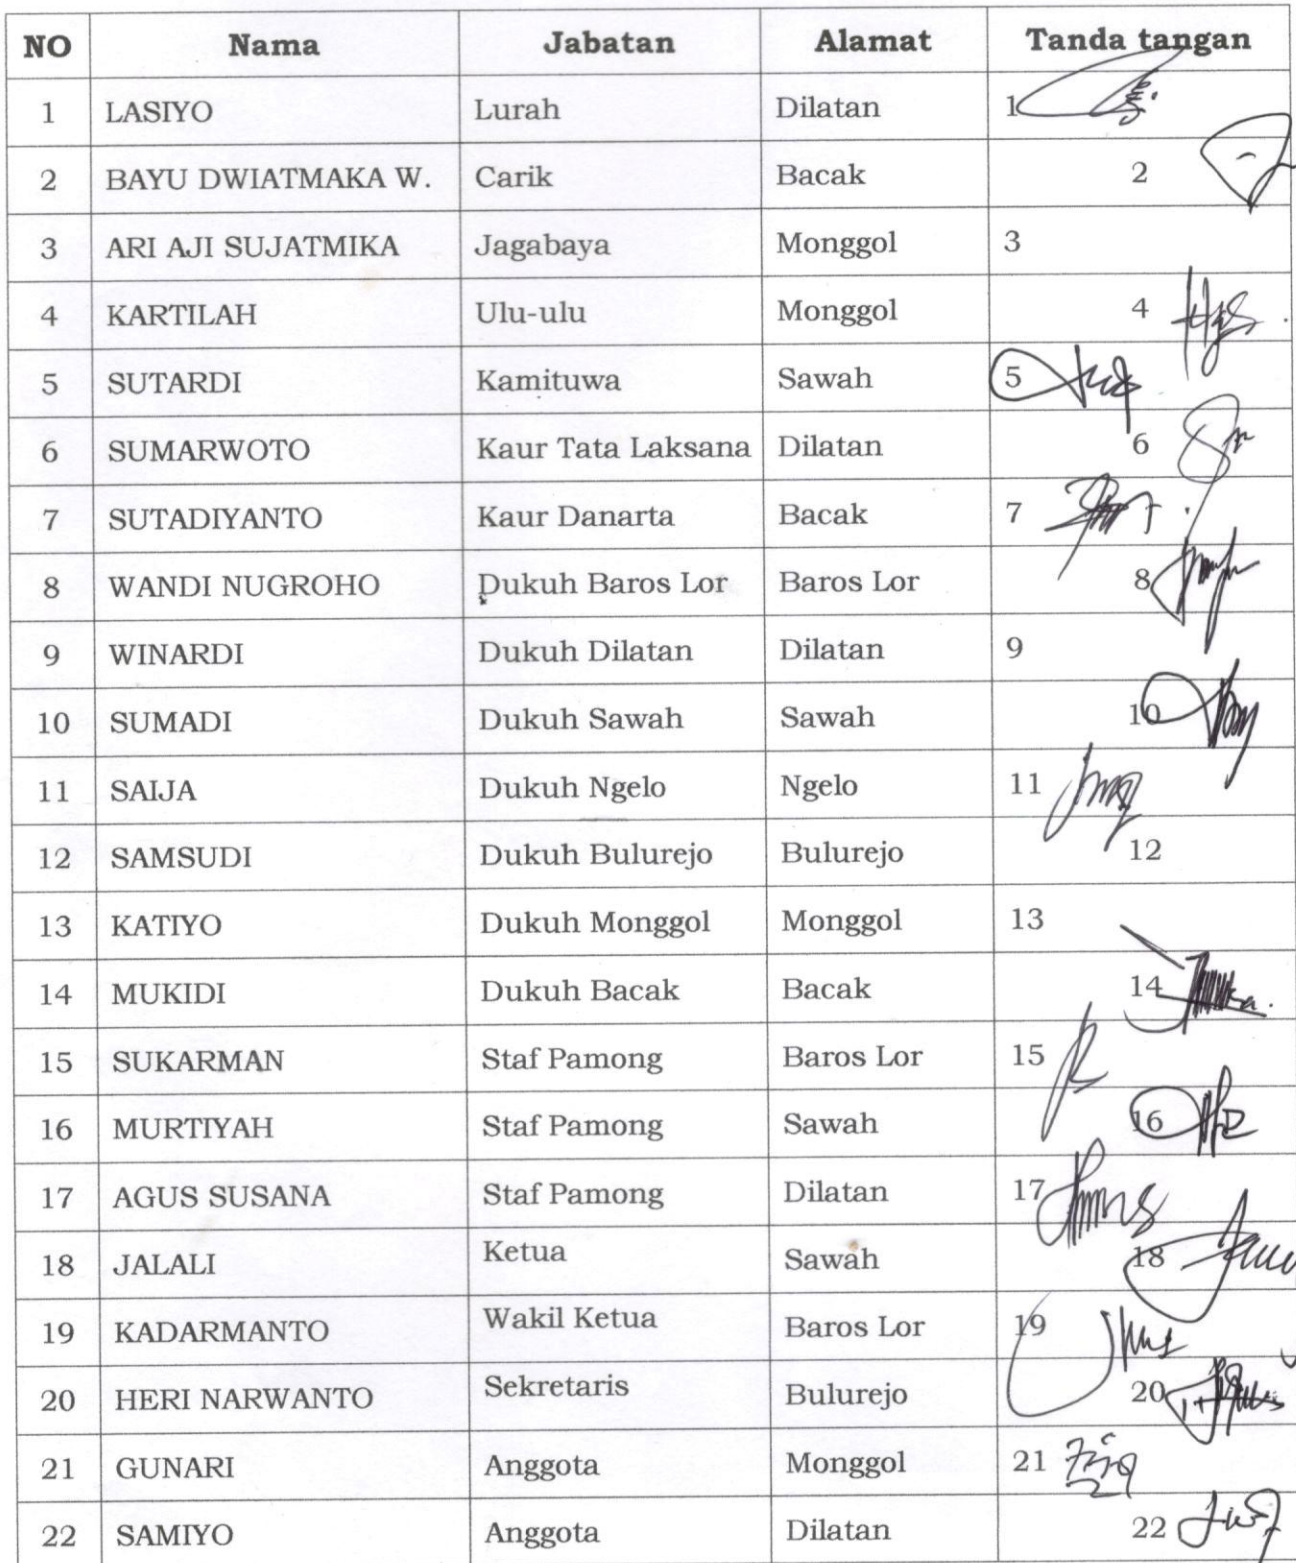 NO Nama Jabatan Alamat Tanda tangan
1 LASIYO Lurah Dilatan 1
2 BAYU DWIATMAKA W. Carik Bacak 2
3 ARI AJI SUJATMIKA Jagabaya Monggol 3
4 KARTILAH Ulu-ulu Monggol 4
5 SUTARDI Kamituwa Sawah 5
6 SUMARWOTO Kaur Tata Laksana Dilatan 6
7 SUTADIYANTO Kaur Danarta Bacak 7
8 WANDI NUGROHO Dukuh Baros Lor Baros Lor 8
9 WINARDI Dukuh Dilatan Dilatan 9
10 SUMADI Dukuh Sawah Sawah 10
11 SAIJA Dukuh Ngelo Ngelo 11
12 SAMSUDI Dukuh Bulurejo Bulurejo 12
13 KATIYO Dukuh Monggol Monggol 13
14 MUKIDI Dukuh Bacak Bacak 14
15 SUKARMAN Staf Pamong Baros Lor 15
16 MURTIYAH Staf Pamong Sawah 16
17 AGUS SUSANA Staf Pamong Dilatan 17
18 JALALI Ketua Sawah 18
19 KADARMANTO Wakil Ketua Baros Lor 19
20 HERI NARWANTO Sekretaris Bulurejo 20
21 GUNARI Anggota Monggol 21
22 SAMIYO Anggota Dilatan 22